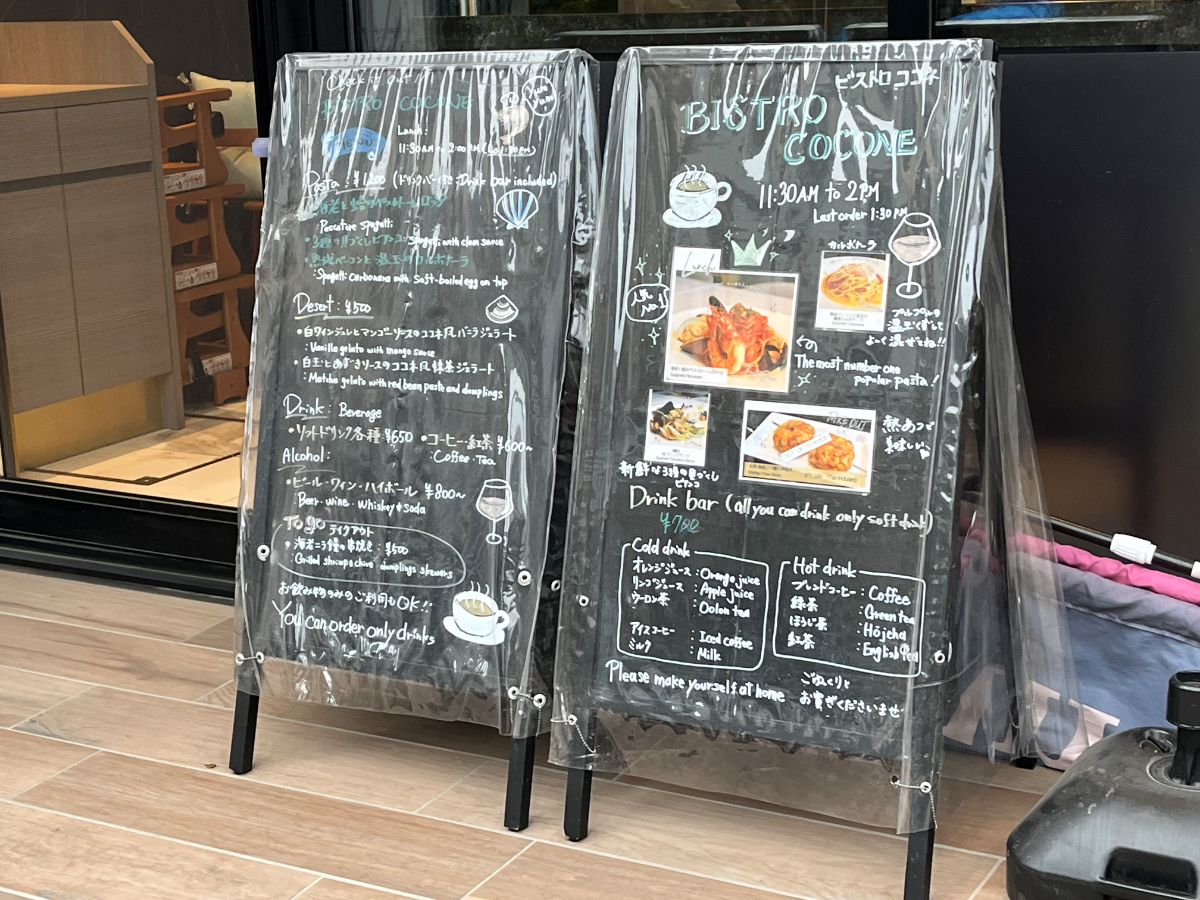 Check it out
BISTRO COCONE
Yum Yum
MENU
Lunch:
11:30AM to 2:00PM (Lo 1:30PM)
Pasta : ¥1,200 (ドリンクバー付き : Drink bar included)
Pescature spagetti
Spagetti with clam sauce
・熱焼ベーコンと温玉のカルボナーラ
: Spagetti carbonara with soft-boiled egg on top
Desert : ¥500
・白ワインジュレとマンゴーソースのココネ風バニラジェラート
: Vanilla gelato with mango sauce
・白玉とあずきソースのココネ風抹茶ジェラート
: Matcha gelato with red bean paste and dumplings
Drink : Beverage
・ソフトドリンク各種 ¥650 ・コーヒー・紅茶 ¥600~
・Coffee・Tea
Alcohol :
・ビール・ワイン・ハイボール ¥800~
Beer・wine・Whiskey & soda
To go テイクアウト
・海老ニラ饅の串焼き : ¥500
Grilled shrimp & chive dumplings skewers
お飲み物のみのご利用もOK!!
You can order only drinks
ビストロ ココネ
BISTRO
COCONE
11:30AM to 2PM
Last order 1:30PM
Lunch
カルボナーラ
人気
No.1
プルプルの
温玉くずして
よーく混ぜてね!!
The most number one
popular pasta!
TAKE OUT
熱あつで
美味しい
新鮮な3種の貝づくし
ビアンコ
Drink bar (all you can drink only soft drink)
¥700
Cold drink
オレンジジュース : Orange juice
リンゴジュース : Apple juice
ウーロン茶 : Oolon tea
アイスコーヒー : Iced coffee
ミルク : Milk
Hot drink
ブレンドコーヒー : Coffee
緑茶 : Green tea
ほうじ茶 : Hojicha
紅茶 : English Tea
Please make yourself at home
ごゆっくりと
お寛ぎくださいませ